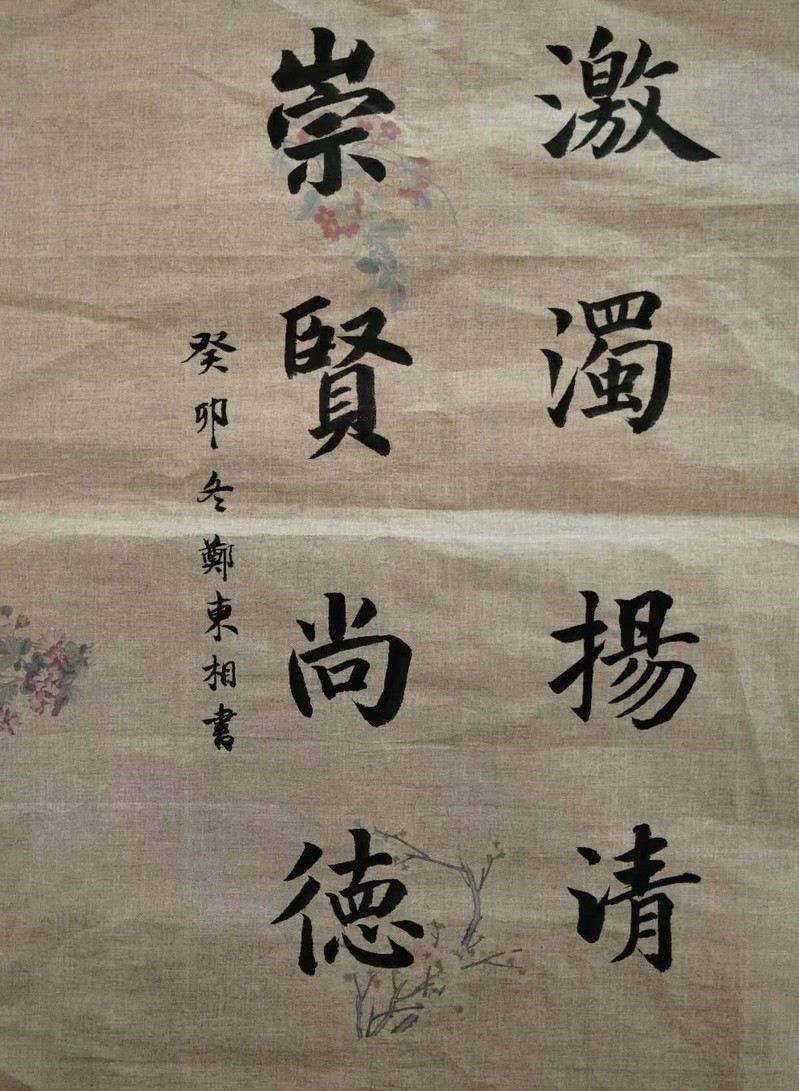 激濁揚清
崇賢尚德
癸卯冬鄭東相書